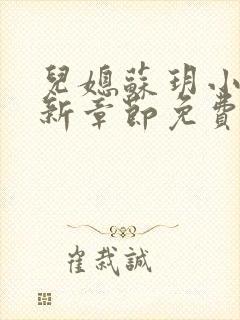 兒媳蘇玥小
新章節免費
崔裁誠